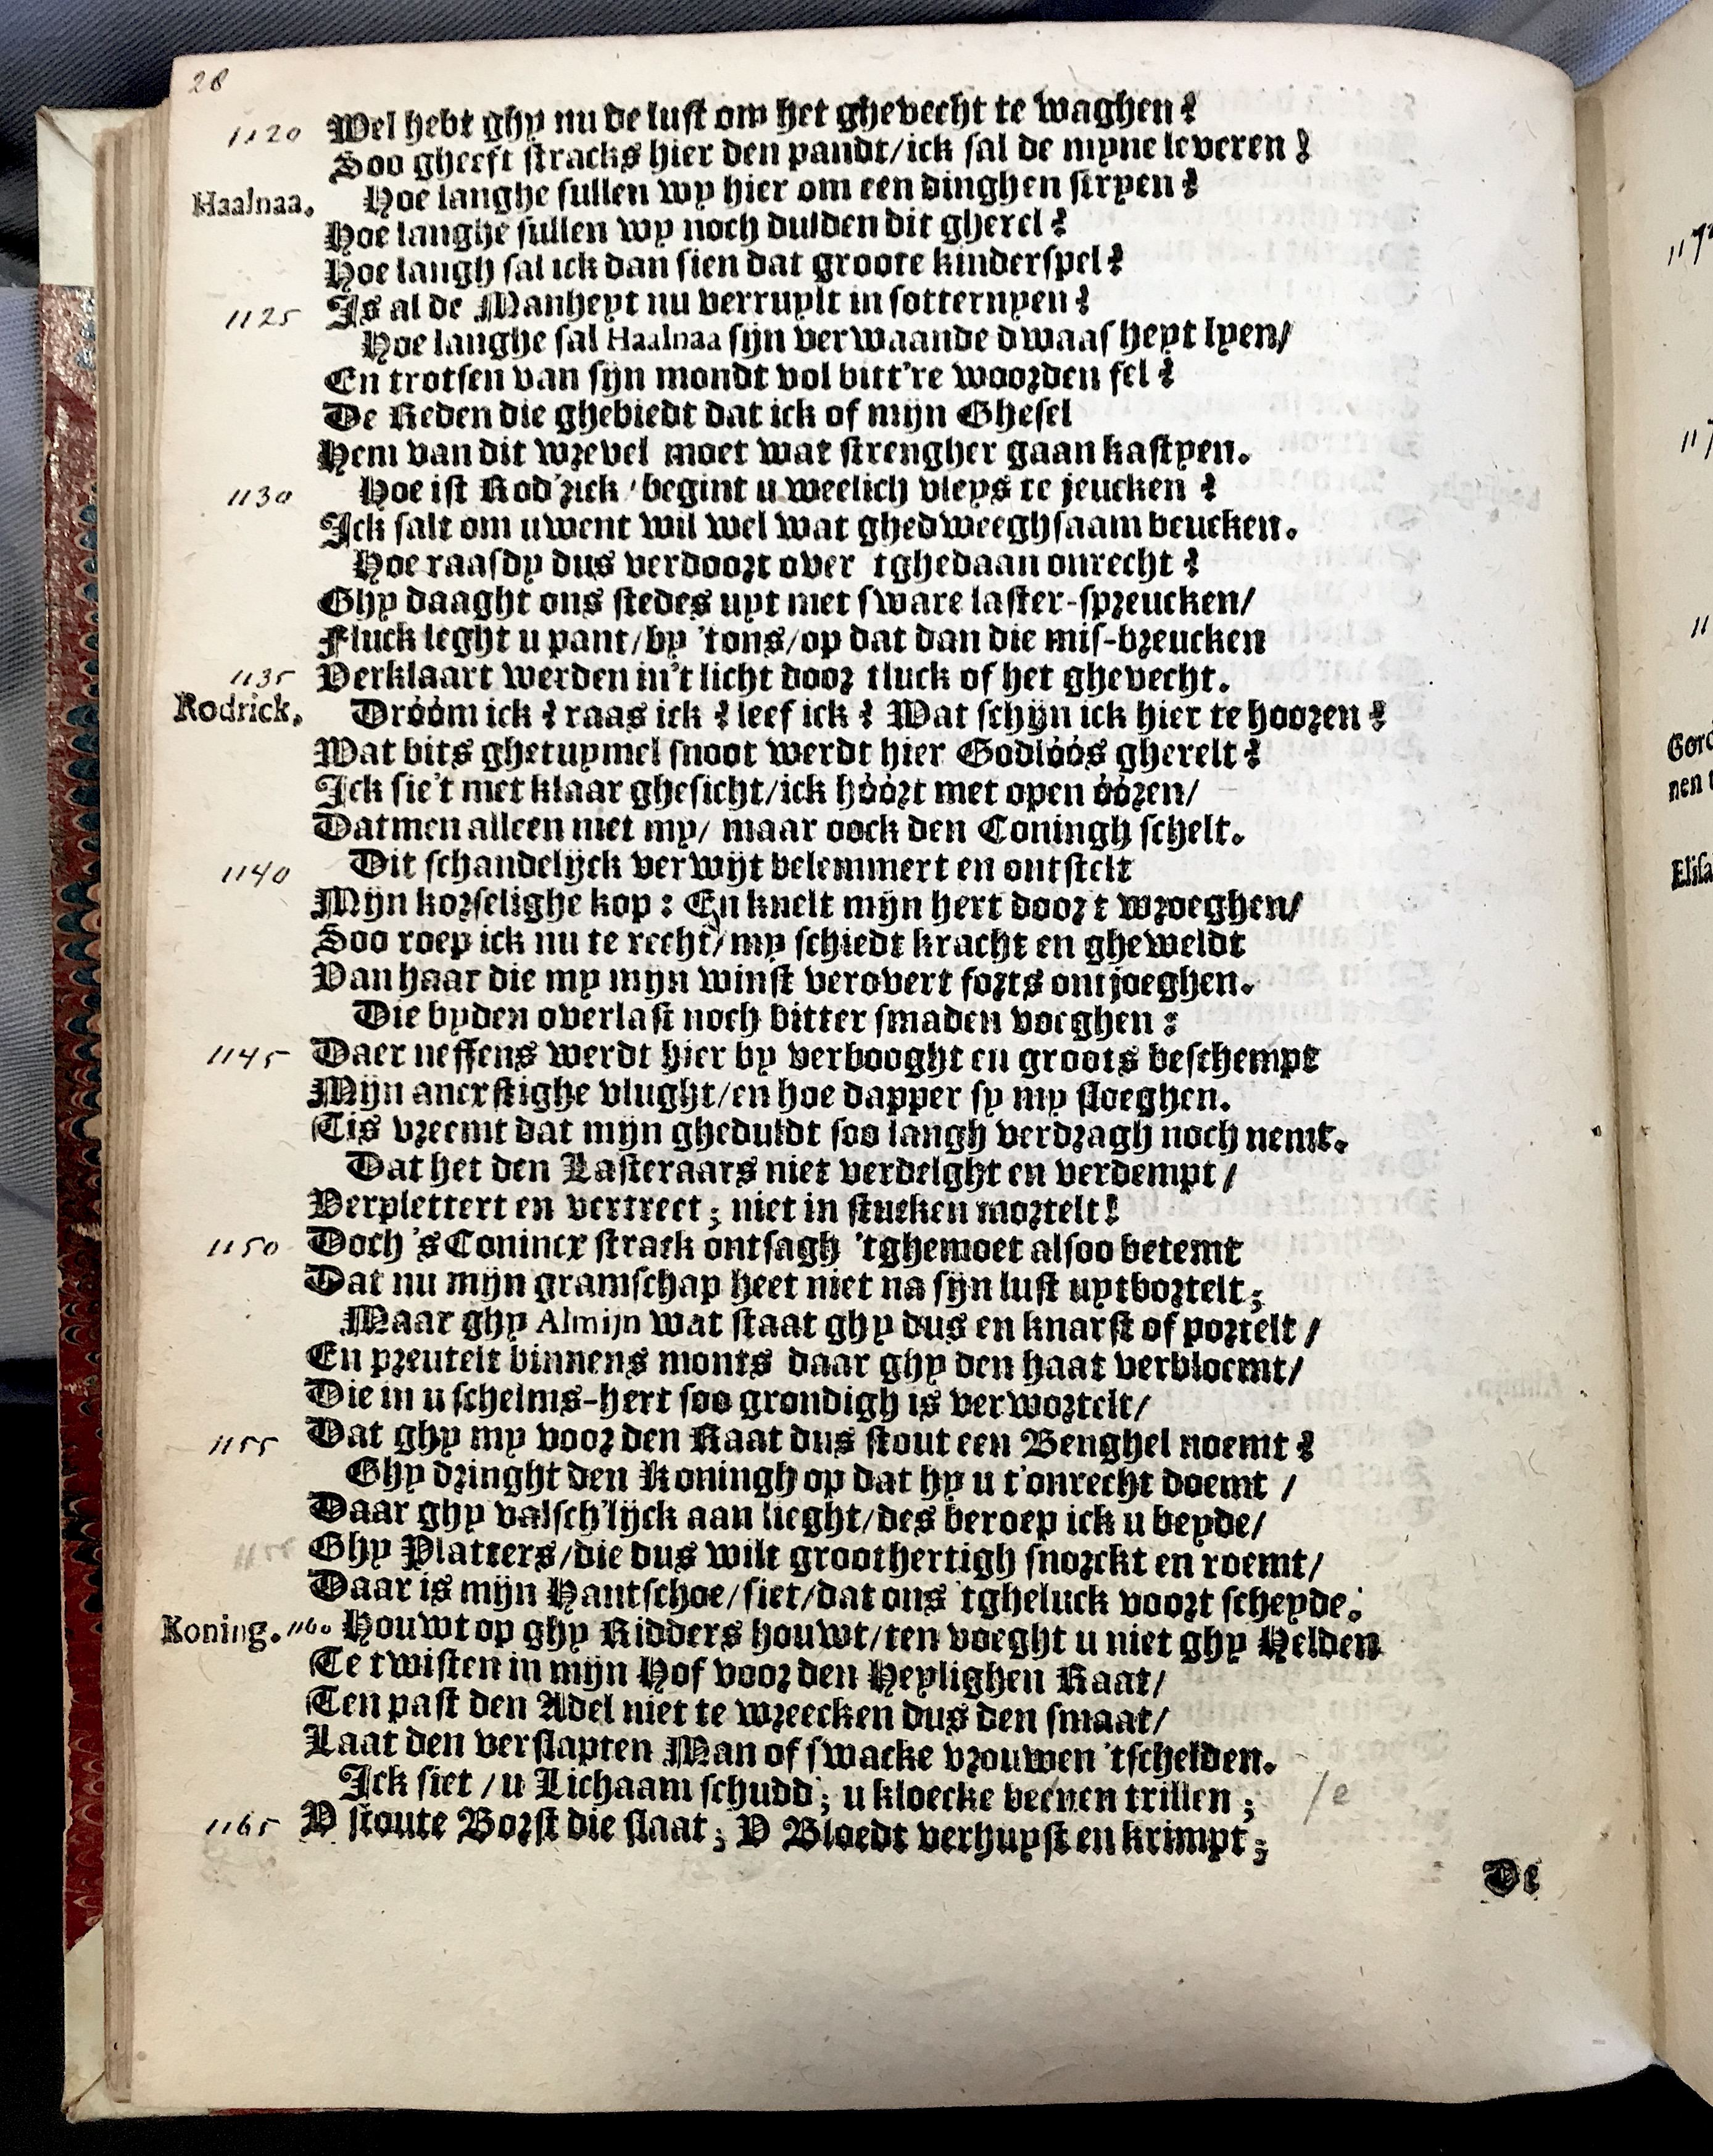 28
1120 Wel hebt ghy nu de lust om het ghevecht te waghen?
Soo gheeft stracks hier den pandt/ick sal de myne leveren!
Haalnaa. Hoe langhe sullen wy hier om een dinghen stryen?
Hoe langhe sullen wy noch dulden dit gherel?
Hoe langh sal ick dan sien dat groote kinderspel?
1125 Is al de Manheyt nu verruylt in sotternyen?
Hoe langhe sal Haalnaa sijn verwaande dwaasheyt lyen/
En trotsen van sijn mondt vol bitt're woorden fel?
De Reden die ghebiedt dat ick of mijn Ghesel
Hem van dit wrevel moet wat strengher gaan kastyen.
1130 Hoe ist Rod'rick/begint u weelich vleys te jeucken?
Ick salt om uwent wil wel wat ghedweeghsaam beucken.
Hoe raasdy dus verdoort over tghedaan onrecht?
Ghy daaght ons stedes uyt met sware laster-spreucken/
Fluck leght u pant/by 'tons/op dat dan die mis-breucken
1135 Verklaart werden in't licht door tluck of het ghevecht.
Rodrick. Dróóm ick? raas ick? leef ick? Wat schijn ick hier te hooren?
Wat bits ghetuymel snoot werdt hier Godlóós gherelt?
Ick sie't met klaar ghesicht/ick hóórt met open óóren/
Datmen alleen niet my/ maar oock den Coningh schelt.
1140 Dit schandelijck verwijt belemmert en ontstelt
Mijn korselighe kop: En knelt mijn hert door t wroeghen/
Soo roep ick nu te recht/my schiedt kracht en gheweldt
Van haar die my mijn winst verovert forts ontjoeghen.
Die byden overlast noch bitter smaden voeghen:
1145 Daer neffens werdt hier by verbooght en groots beschempt
Mijn ancxstighe vlught/en hoe dapper sy my sloeghen.
Tis vreemt dat mijn gheduldt soo langh verdragh noch nemt.
Dat het den Lasteraars niet verdelght en verdempt/
Verplettert en vertreet; niet in stucken mortelt!
1150 Doch 's Conincx strack ontsagh 'tghemoet alsoo betemt
Dat nu mijn gramschap heet niet na sijn lust uytbortelt;
Maar ghy Almijn wat staat ghy dus en knarst of portelt/
En preutelt binnens monts daar ghy den haat verbloemt/
Die in u schelms-hert soo grondigh is verwortelt/
1155 Dat ghy my voor den Raat dus stout een Benghel noemt?
Ghy dringht den Koningh op dat hy u t'onrecht doemt/
Daar ghy valsch'lijck aan lieght/des beroep ick u beyde/
Ghy Platters/die dus wilt groothertigh snorckt en roemt/
Daar is mijn Hantschoe/siet/dat ons 'tgheluck voort scheyde.
Koning. 1160 Houwt op ghy Ridders houwt/ten voeght u niet ghy Helden
Te twisten in mijn Hof voor den Heylighen Raat/
Ten past den Adel niet te wreecken dus den smaat/
Laat den verslapten Man of swacke vrouwen 'tschelden.
Ick siet/u Lichaam schudd; u kloecke beenen trillen; /e
1165 V stoute Borst die slaat; V Bloedt verhuyst en krimpt;
De